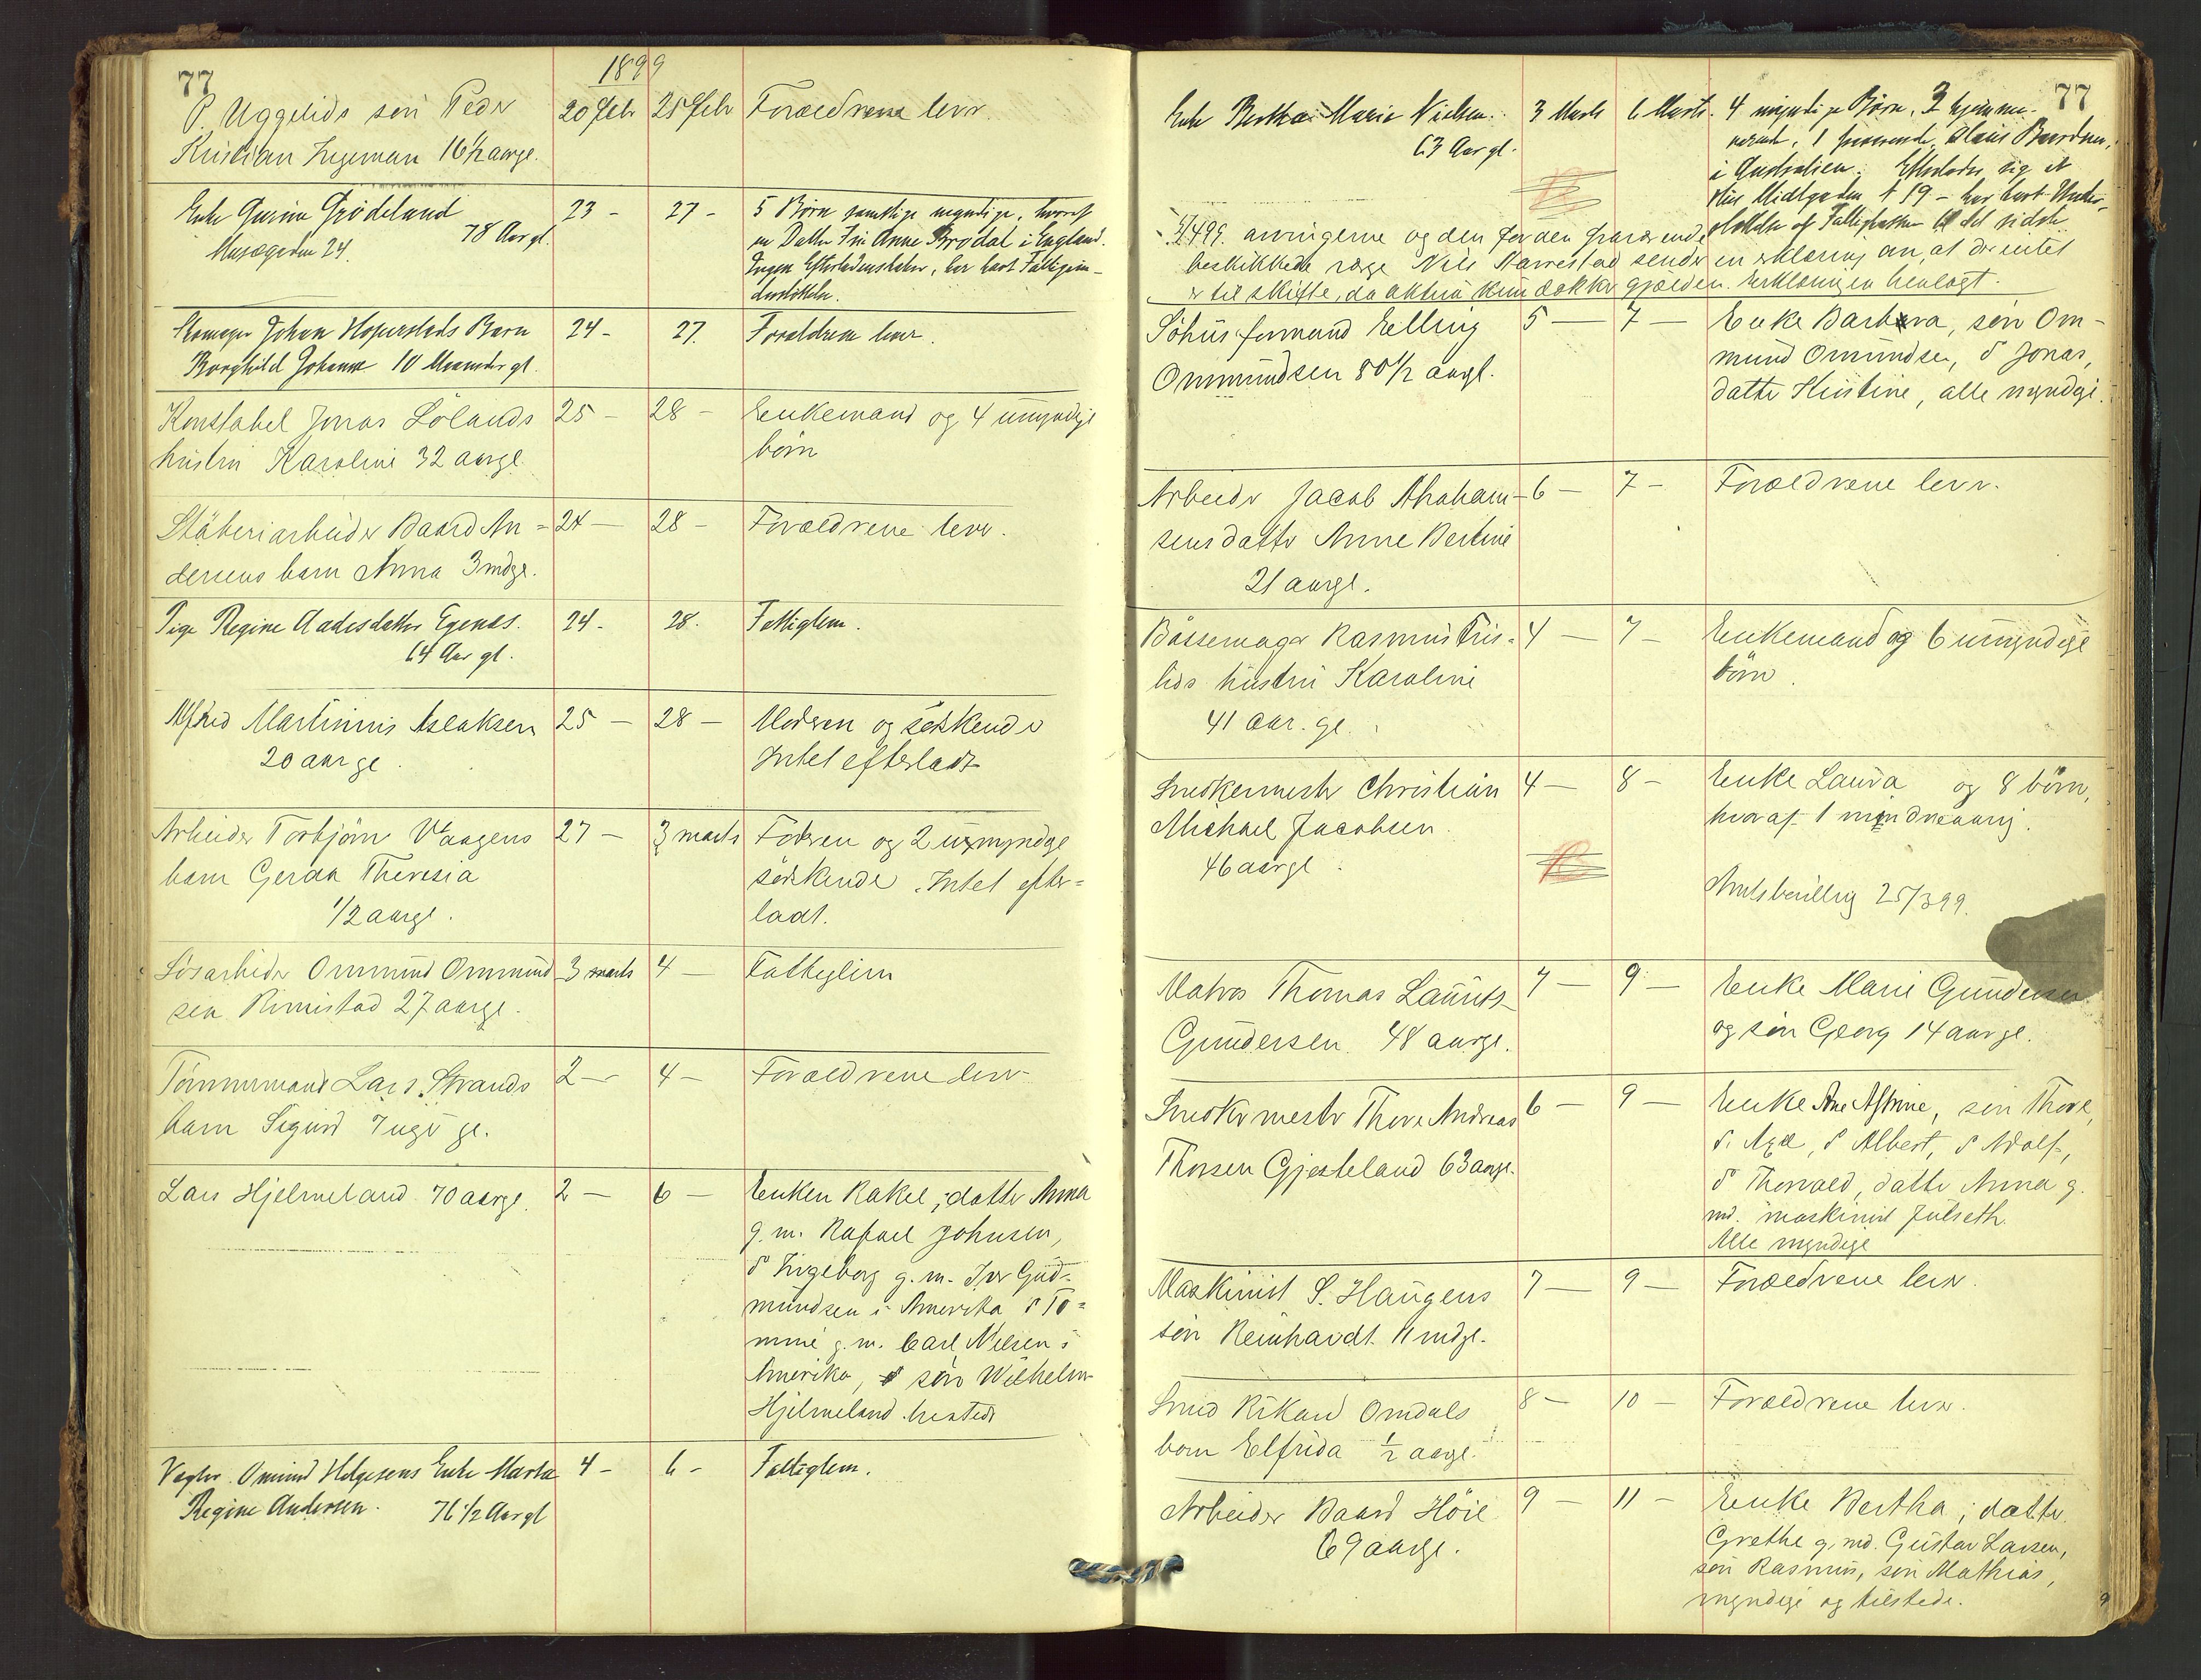 77
1899
P. Uggelids søn Peder 20 febr 25 febr Forældrene lever.
Kristian Ingeman 16½ aarge.
Enke Gurine Grødeland 23 - 27 - 5 Børn samtlige myndige, hvoraf
78 Aar gl. en Datter Fru Anne Brodal i England.
Musægaden 24. Ingen Efterladenskaber, har havt Fattigun-
derstøttelse.
Skomager Johan Hoperstads Barn 24 - 27. Forældrene lever.
Borghild Johanne 10 Maaneder gl.
Konstabel Jonas Lølands 25 - 28 - Enkemand og 4 umyndige
hustru Karoline 32 aarge. børn
Støberiarbeider Baard An= 24 - 28 - Forældrene lever.
dersens barn Anna 3 mdge.
Pige Regine Aadesdatter Egenæs. 24 - 28. Fattiglem.
64 Aar gl.
Alfred Martinius Aslaksen 25 - 28 - Moderen og søskende
20 aar ge. Intet efterladt
Arbeider Torbjørn Vaagens 27 - 3 marts Faderen og 2 umyndge
barn Gerda Theresia søskende. Intet efter=
1/2 aarge. ladt.
Løsarbeider Ommund Ommund 3 marts 4 - Fattiglem
sen Rimestad 27 aarge.
Tømmermand Lars Strands 2 - 4 - Forældrene lever
barn Sigurd 7 uger ge.
Lars Hjelmeland 70 aarge. 2 - 6 - Enken Rakel; datter Anna
g. m. Rafael Johnsen,
d Ingeborg g. m. Iver Gud=
mundsen i Amerika d To=
mine g. m. Carl Nielsen i
Amerika, søn Wilhelm
Hjelmeland tilstede
Vægter Omund Helgesens Enke Marta 4 - 6 - Fattiglem.
Regine Andersen. 76 1/2 Aar gl
77
Enke Bertha Marie Nielsen. 3 Marts 6 Marts. 4 myndige Børn, 3 hjemmeværende,
63 Aar gl. 1 fraværende
i Australien. Efterlader sig et
Hus Midtgaden № 19 - har havt Under-
støttelse af Fattigkassen til det sidste
4/4 99. arvingerne og den for den fraværende
beskikkede værge Nils Narrestad sender en erklæring an, at der intet
er til skifte, da aktiva kun dækker gjælden. Erklæringen henlagt.
Søhusformand Elling 5 - 7 - Enke Barbra, søn Om-
Ommundsen 80 1/2 aargl. mund Omundsen, d Jonas,
datter Kristine, alle myndige.
Arbeider Jacob Abraham- 6 - 7 - Forældrene lever.
sens datter Anne Bertine
21 aarge.
Bøssemager Rasmus Tris= 4 - 7 - Enkemand og 6 umyndige
lids hustru Karoline børn.
41 aar. ge.
Snedkermester Christian 4 - 8 - Enke Laura og 8 børn,
Michael Jacobsen. hvoraf 1 mindreaarig.
46 aarge.
Amtsbevilling 25/3 99.
Matros Thomas Lauritz 7 - 9 - Enke Marie Gundersen
Gundersen 48 aarge. og søn Georg 14 aarge.
Snedkermester Thore Andreas 6 - 9 - Enke Ane Astrine, søn Thore,
Thorsen Gjesteland 63 aarge. d. Axel, d Albert, d Adolf,
d Thorvald, datter Anna g.
md. maskinist Julseth.
Alle myndige
Maskinist S. Haugens 7 - 9 - Forældrene lever.
søn Reinhardt 11 mdge.
Smed Rikard Omdals 8 - 10 - Forældrene lever.
barn Elfrida 1/2 aarge.
Arbeider Baard Høie 9 - 11 - Enke Bertha; datter
69 aarge. Grethe g. md. Gustav Larsen,
søn Rasmus, søn Mathias,
myndige og tilstede.